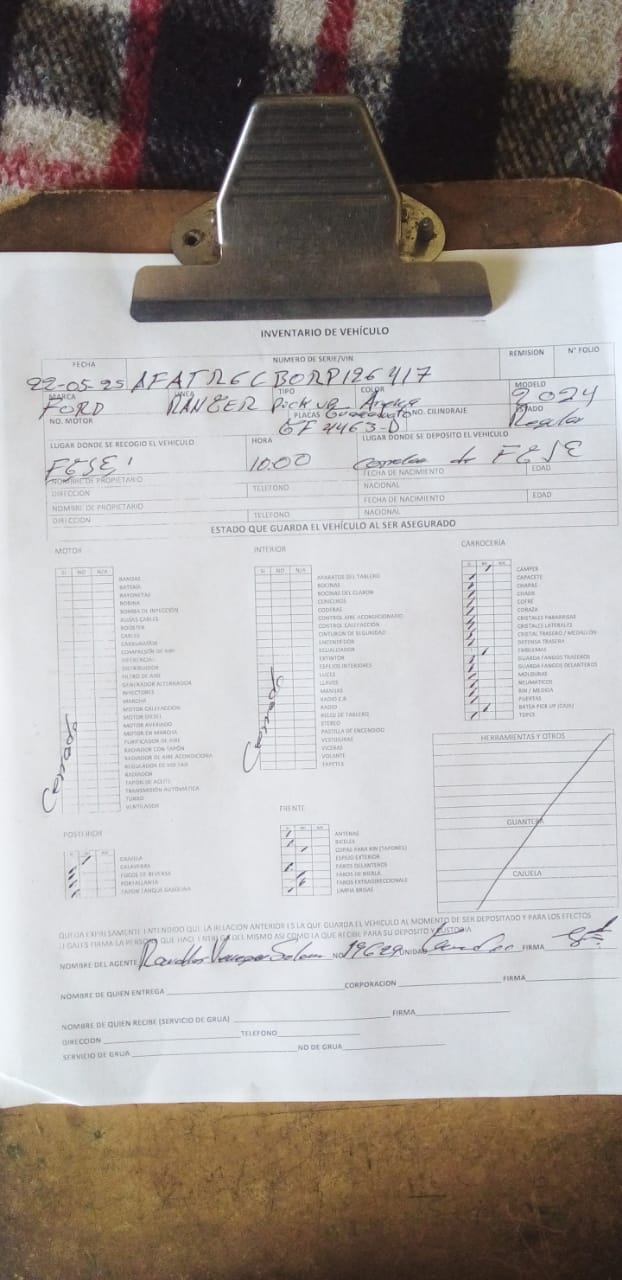 INVENTARIO DE VEHÍCULO
FECHA NUMERO DE SERIE/VIN REMISION N° FOLIO
22-05-25
MARCA LINEA TIPO COLOR MODELO
FORD RANGER Pick up Arena 2024
NO. MOTOR PLACAS Guanajuato NO. CILINDRAJE ESTADO
Regular
LUGAR DONDE SE RECOGIO EL VEHICULO HORA LUGAR DONDE SE DEPOSITO EL VEHÍCULO
10:00
NOMBRE DE PROPIETARIO FECHA DE NACIMIENTO EDAD
DIRECCION TELEFONO NACIONAL
NOMBRE DE PROPIETARIO FECHA DE NACIMIENTO EDAD
DIRECCION TELEFONO NACIONAL
ESTADO QUE GUARDA EL VEHÍCULO AL SER ASEGURADO
MOTOR
SI NO N/A
BANDAS
BATERIA
BAYONETAS
BOBINA
BOMBA DE INYECCIÓN
BUJÍAS CABLES
BOOSTER
CABLES
CARBURADOR
COMPRESIÓN DE AIRE
DIFERENCIAL
DISTRIBUIDOR
FILTRO DE AIRE
GENERADOR ALTERNADOR
INYECTORES
MARCHA
MOTOR CALEFACCION
MOTOR DIESEL
MOTOR AVERIADO
MOTOR EN MARCHA
PURIFICADOR DE AIRE
RADIADOR CON TAPÓN
RADIADOR DE AIRE ACONDICIONA
REGULADOR DE VOLTAJE
RADIADOR
TAPÓN DE ACEITE
TRANSMISIÓN AUTOMÁTICA
TURBO
VENTILADOR
Cerrado
INTERIOR
SI NO N/A
APARATOS DEL TABLERO
BOCINAS
BOCINAS DEL CLAXON
CENICEROS
CODERAS
CONTROL AIRE ACONDICIONADO
CONTROL CALEFACCIÓN
CINTURON DE SEGURIDAD
ENCENDEDOR
ECUALIZADOR
EXTINTOR
ESPEJOS INTERIORES
LUCES
LLAVES
MANIJAS
RADIO C.B
RADIO
RELOJ DE TABLERO
ESTEREO
PASTILLA DE ENCENDIDO
VESTIDURAS
VICERAS
VOLANTE
TAPETES
Cerrado
CARROCERÍA
CAMPER
CAPACETE
CHAPAS
CHASIS
COFRE
CORAZA
CRISTALES PARABRISAS
CRISTALES LATERALES
CRISTAL TRASERO / MEDALLON
DEFENSA TRASERA
EMBLEMAS
GUARDA FANGOS TRASEROS
GUARDA FANGOS DELANTEROS
MOLDURAS
NEUMATICOS
RIN / MEDIDA
PUERTAS
BATEA PICK UP (CAJA)
TOPES
HERRAMIENTAS Y OTROS
GUANTERA
CAJUELA
POSTERIOR
CAJUELA
CALAVERAS
FOCOS DE REVERSA
PORTALLANTA
TAPON TANQUE GASOLINA
FRENTE
ANTENAS
BICELES
COPAS PARA RIN (TAPONES)
ESPEJO EXTERIOR
FAROS DELANTEROS
FAROS DE NIEBLA
FAROS EXTRADIRECCIONALE
LIMPIA BRISAS
QUEDA EXPRESAMENTE ENTENDIDO QUE LA RELACION ANTERIOR ES LA QUE GUARDA EL VEHÍCULO AL MOMENTO DE SER DEPOSITADO Y PARA LOS EFECTOS
LEGALES FIRMA LA PERSONA QUE HACE ENTREGA DEL MISMO ASÍ COMO LA QUE RECIBE PARA SU DEPOSITO Y CUSTODIA
NOMBRE DEL AGENTE NO 19629 UNIDAD FIRMA
NOMBRE DE QUIEN ENTREGA CORPORACION FIRMA
NOMBRE DE QUIEN RECIBE (SERVICIO DE GRUA) FIRMA
DIRECCION TELEFONO
SERVICIO DE GRUA NO DE GRUA